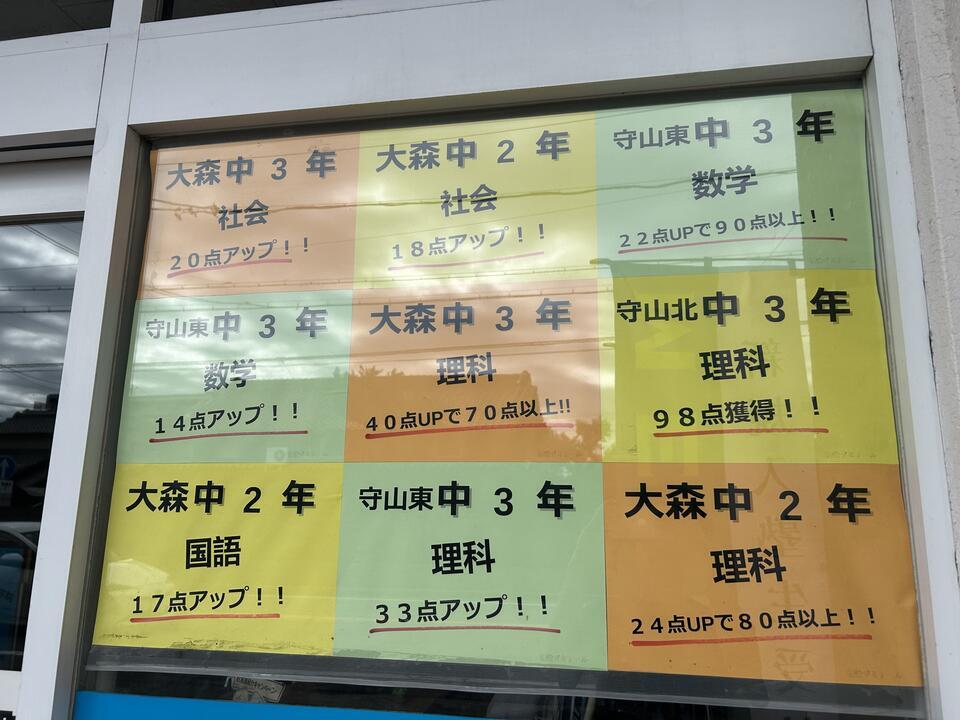 大森中 3 年
社会
20点アップ！！
大森中 2 年
社会
18点アップ！！
守山東中 3 年
数学
22点UPで90点以上！！
守山東中 3 年
数学
14点アップ！！
大森中 3 年
理科
40点UPで70点以上!!
守山北中 3 年
理科
98点獲得！！
大森中 2 年
国語
17点アップ！！
守山東中 3 年
理科
33点アップ！！
大森中 2 年
理科
24点UPで80点以上！！